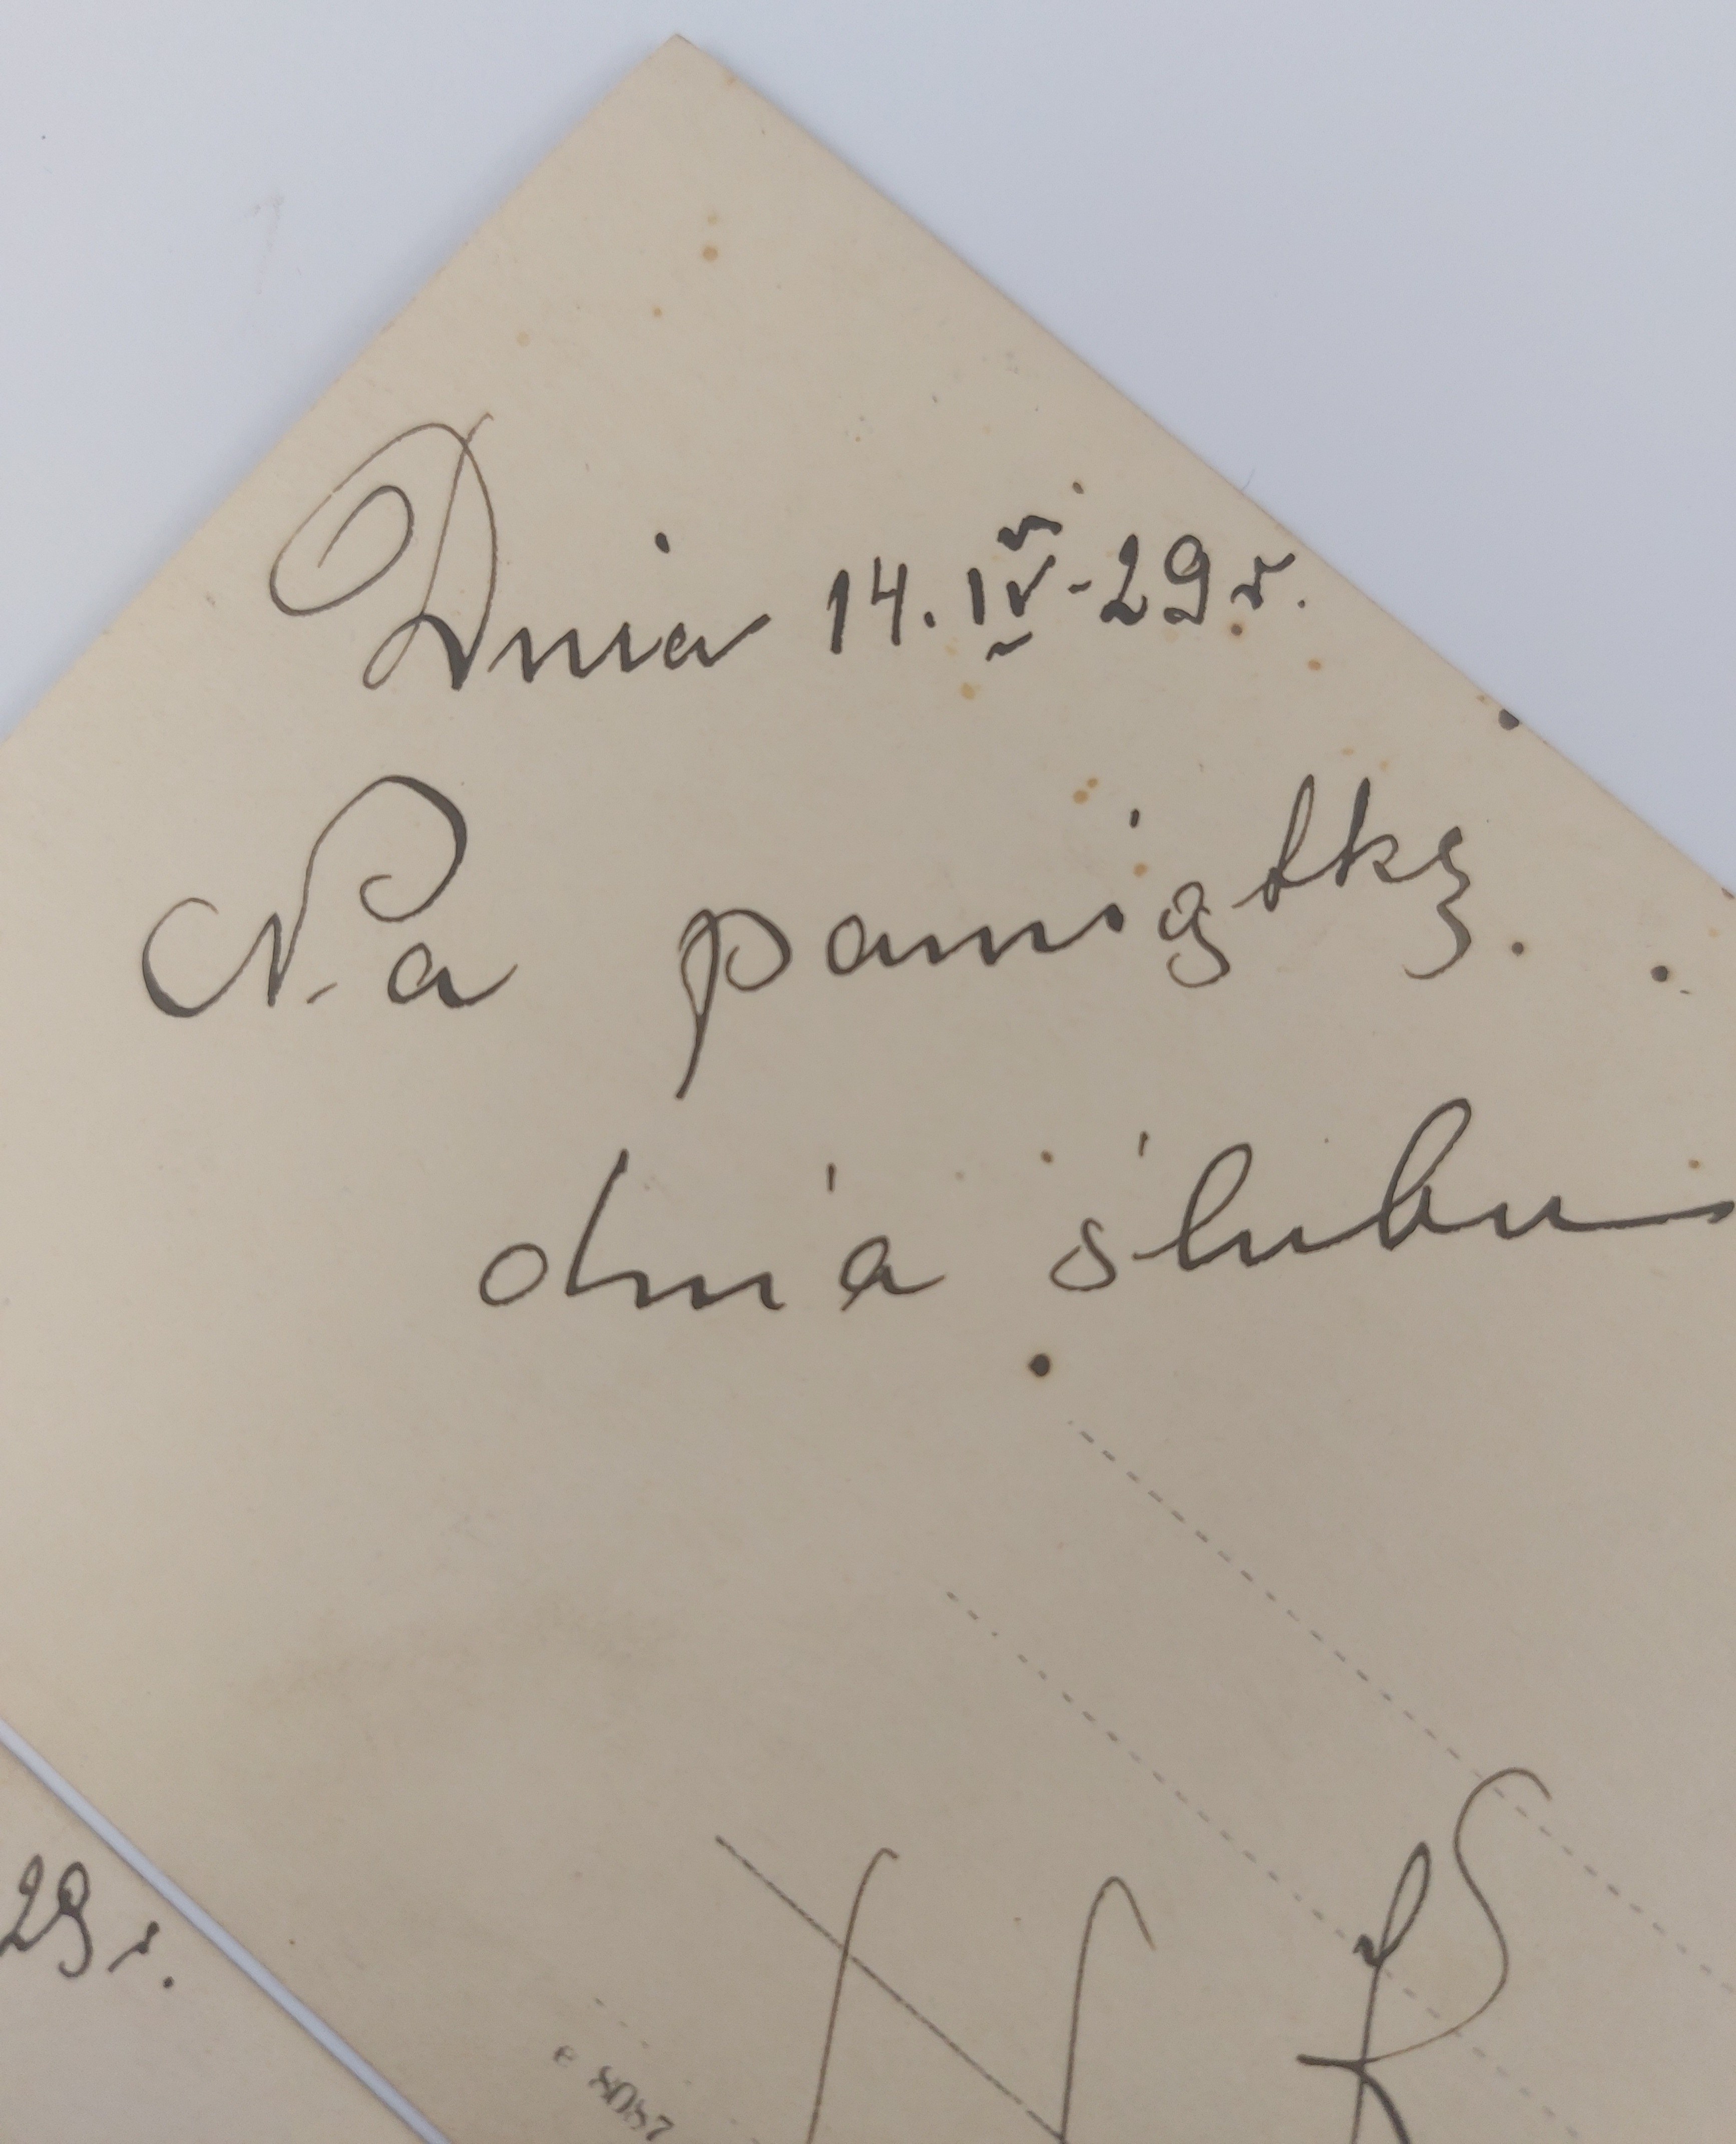 Dnia 14. IV - 29 r.
Na pamiątkę.
dnia ślubu
29 r.
e 8087